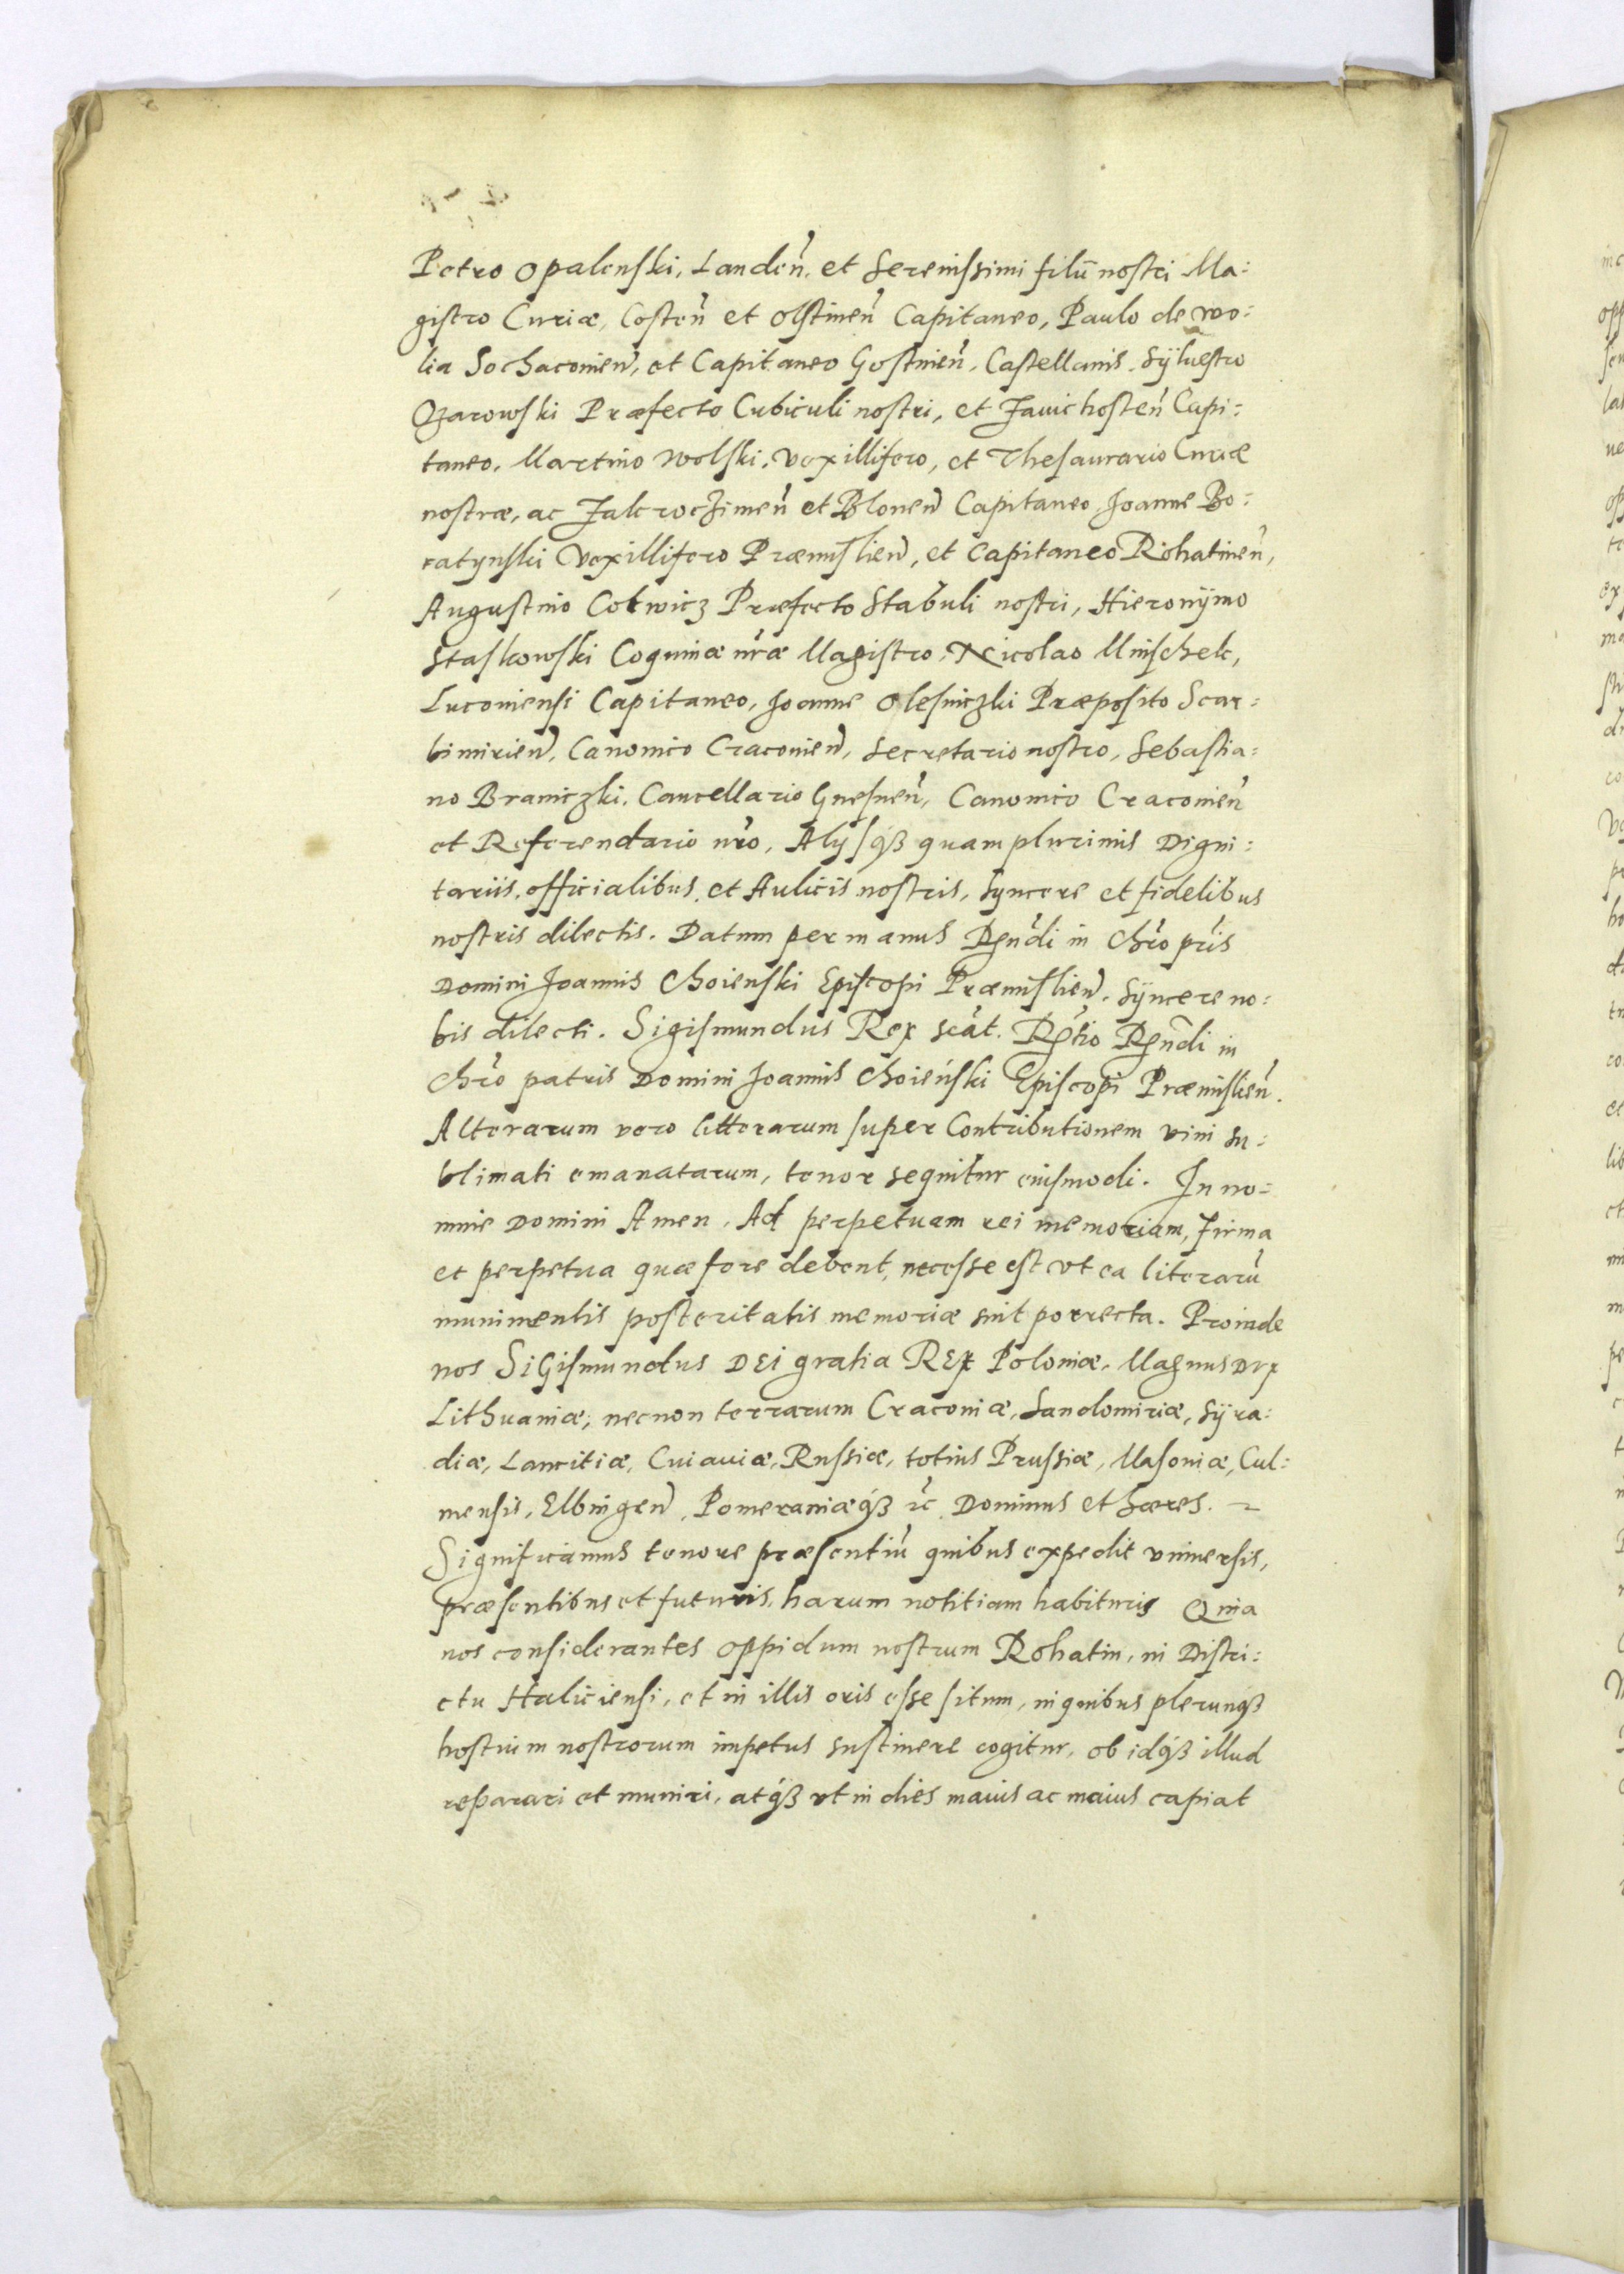 Petro Opalenski, Landen̄, et Serenissimi filii nostri Ma:
gistro Curiæ, Costen̄ et Olstinen̄ Capitaneo, Paulo de Wo:
lia Sochacouien̄, et Capitaneo Gostinien̄, Castellanis, Sÿluestro
Ozarowski Præfecto Cubiculi nostri, et Zauichosten̄ Capi:
taneo, Martino Wolski, Vexillifero, et Thesaurario Curiæ
nostræ, ac Zakroczimen̄ et Blonen̄ Capitaneo, Joanne Bo:
ratynski Vexillifero Præmislien̄, et Capitaneo Rohatinen̄,
Augustino Cotwicz Præfecto Stabuli nostri, Hieronÿmo
Staskowski Coquinæ nr̄æ Magistro, Nicolao Mnischek,
Lucouiensi Capitaneo, Joanne Olesniczki Præposito Scar:
bimirien̄, Canonico Cracouien̄, Secretario nostro, Sebastia:
no Braniczki, Cancellario Gnesnen̄, Canonico Cracouien̄
et Referendario nr̄o, Alijsq3 quam plurimis Digni:
tariis, officialibus, et Aulicis nostris, Syncere et fidelibus
nostris dilectis. Datum per manus Rn̄di in Chr̄o pr̄is
Domini Joannis Choienski Episcopi Præmislien̄, Sÿncere no:
bis dilecti. Sigismundus Rex sc̄at. Rl̄tio Rn̄di in
Chr̄o patris Domini Joannis Choieński Episcopi Præmislien̄.
Alterarum vero litterarum super Contributionem vini su:
blimati emanatarum, tenor sequitur eiusmodi. In no:
mine Domini Amen. Ad perpetuam rei memoriam, Firma
et perpetua quæ fore debent, necesse est vt ea literarū
munimentis posteritatis memoriæ sint porrecta. Proinde
nos SiGismundus DEi gratia REX Poloniæ, Magnus Dux
Lithuaniæ, necnon terrarum Cracouiæ, Sandomiriæ, Sÿra:
diæ, Lancitiæ, Cuiauiæ, Russiæ, totius Prussiæ, Masouiæ, Cul:
mensis, Elbingen̄, Pomeraniæq3 rc̄ Dominus et hæres.
Significamus tenore præsentiū quibus expedit vniuersis,
præsentibus et futuris, harum notitiam habituris Quia
nos considerantes oppidum nostrum Rohatin, in Distri:
ctu Haliciensi, et in illis oris esse situm, in quibus plerunq3
hostium nostrorum impetus sustinere cogitur, ob idq3 illud
reparari et muniri, atq3 vt in dies maius ac maius capiat